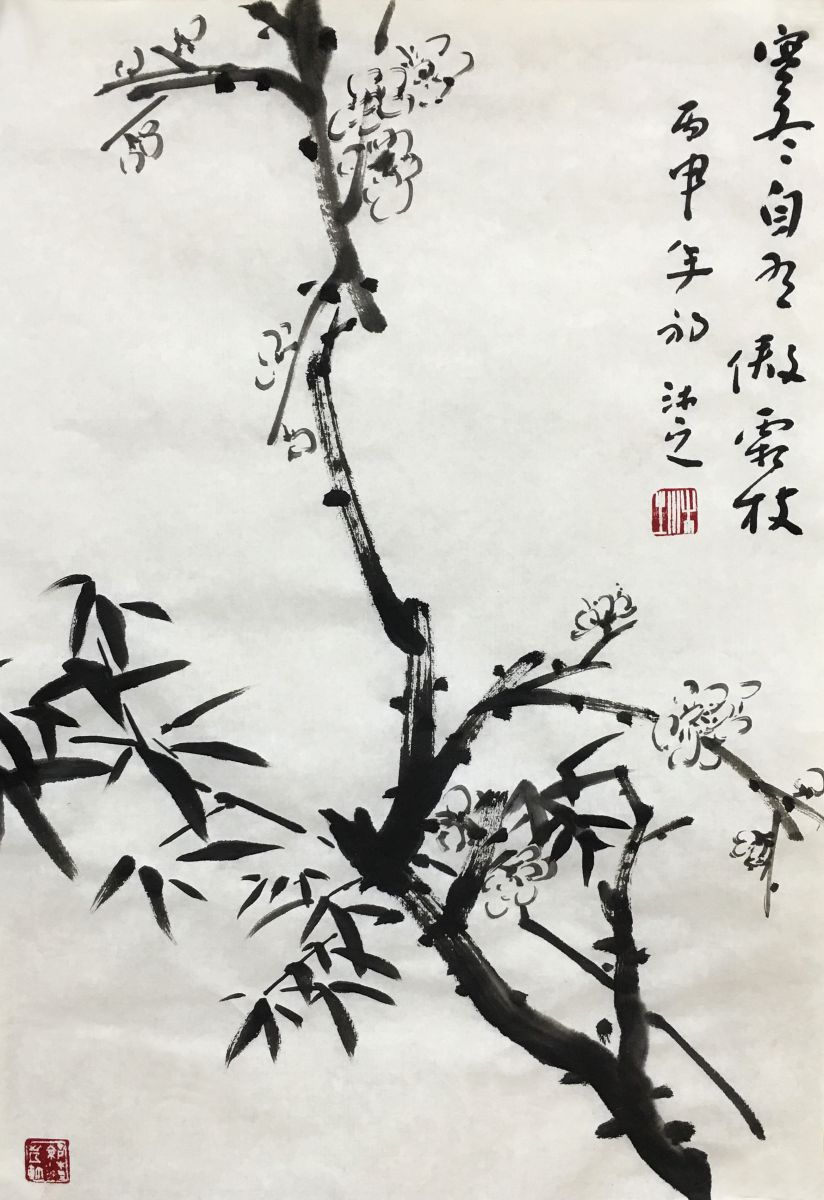 寒冬自有傲霜枝
丙申年初 沐之